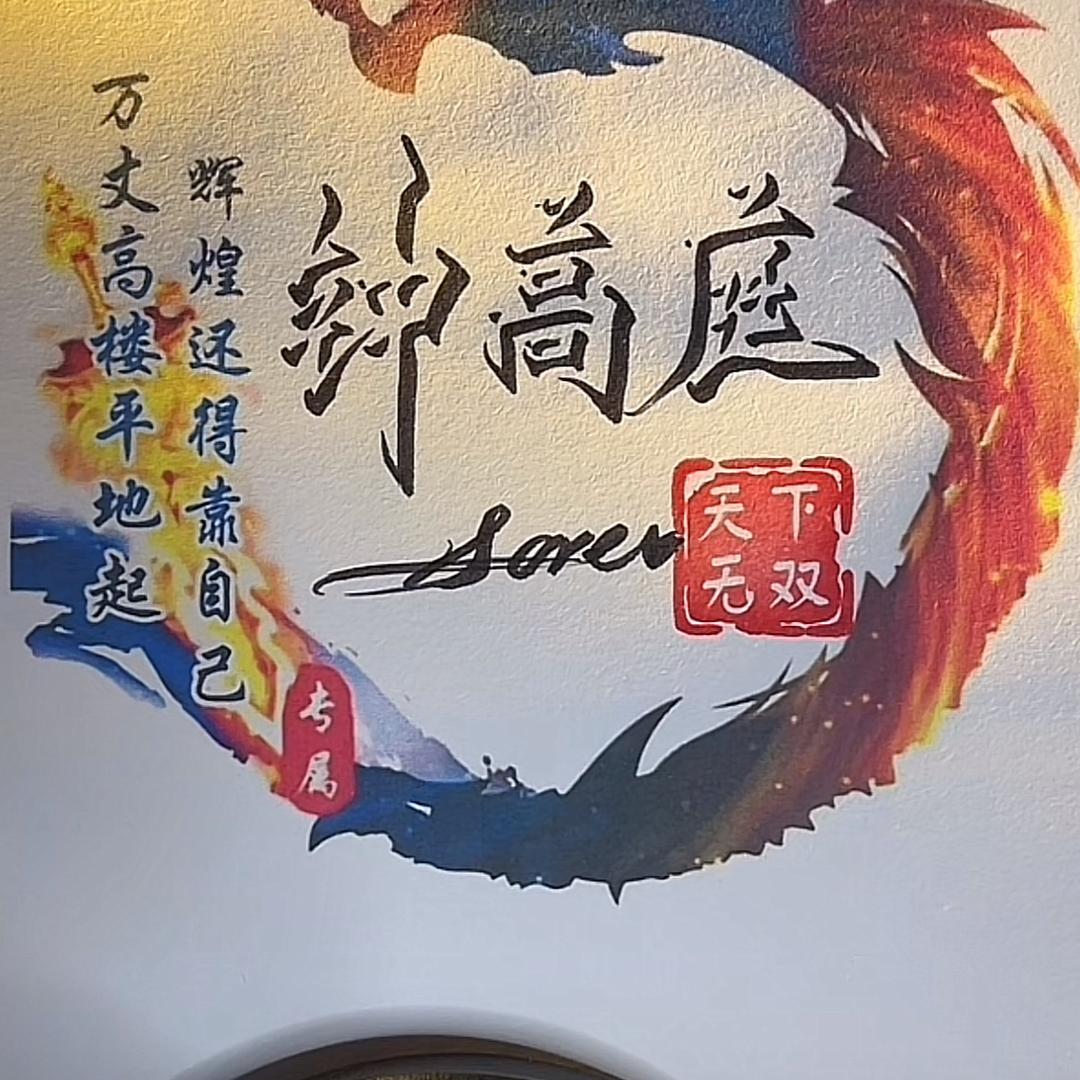 万丈高楼平地起
辉煌还得靠自己
高庭
Soren
天下
无双
专属